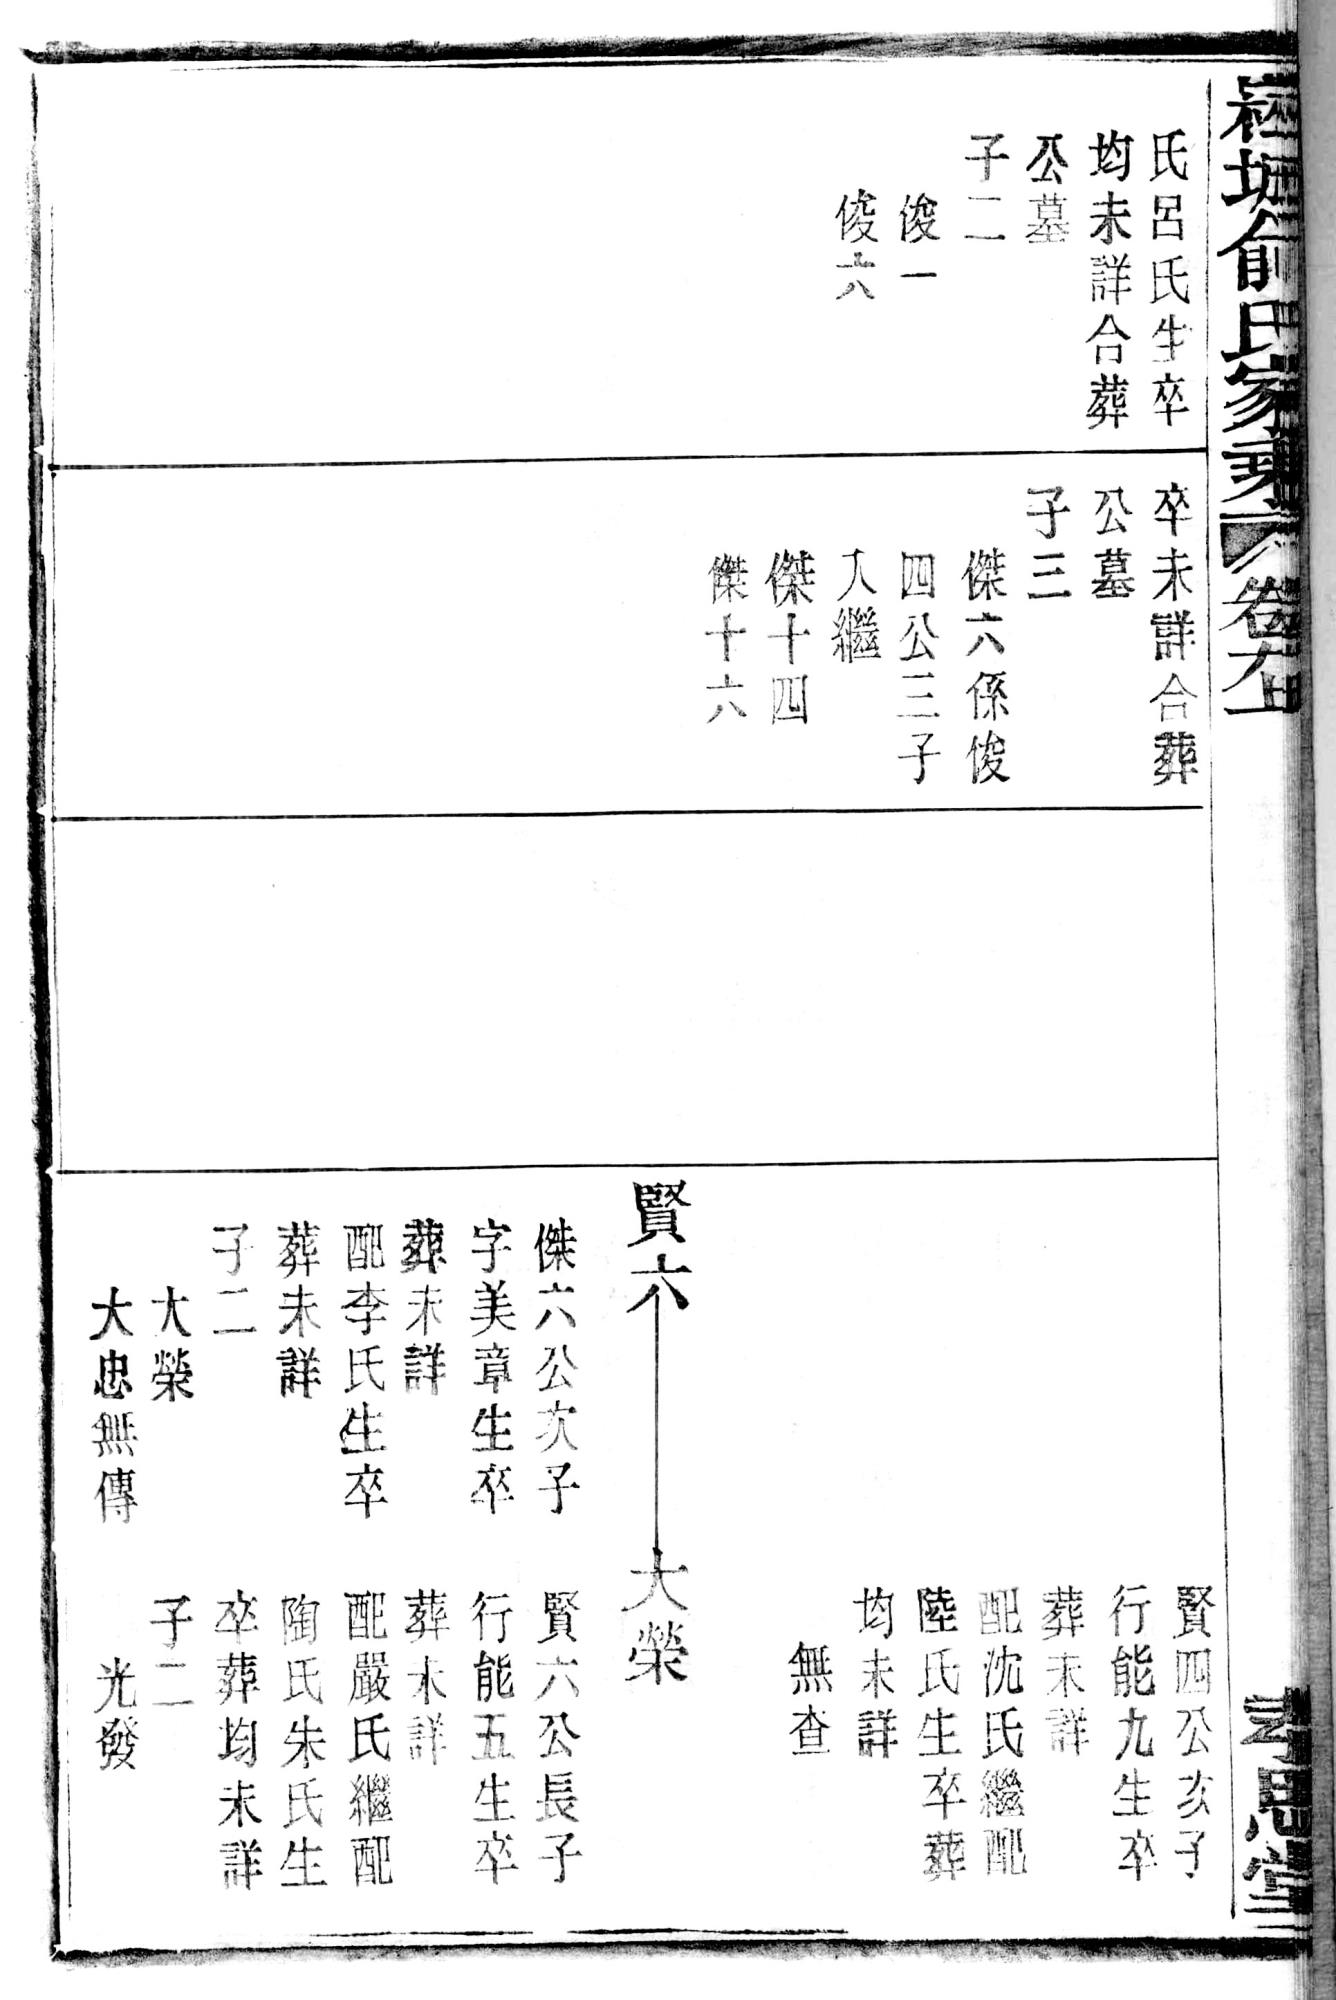 塘俞氏家乘
卷
孝思堂
氏呂氏生卒
均未詳合葬
公墓
子二
俊一
俊六
卒未詳合葬
公墓
子三
傑六係俊
四公三子
入繼
傑十四
傑十六
賢六
傑六公次子
字美章生卒
葬未詳
配李氏生卒
葬未詳
子二
大榮
大忠無傳
賢四公次子
行能九生卒
葬未詳
配沈氏繼配
陸氏生卒葬
均未詳
無查
大榮
賢六公長子
行能五生卒
葬未詳
配嚴氏繼配
陶氏朱氏生
卒葬均未詳
子二
光發